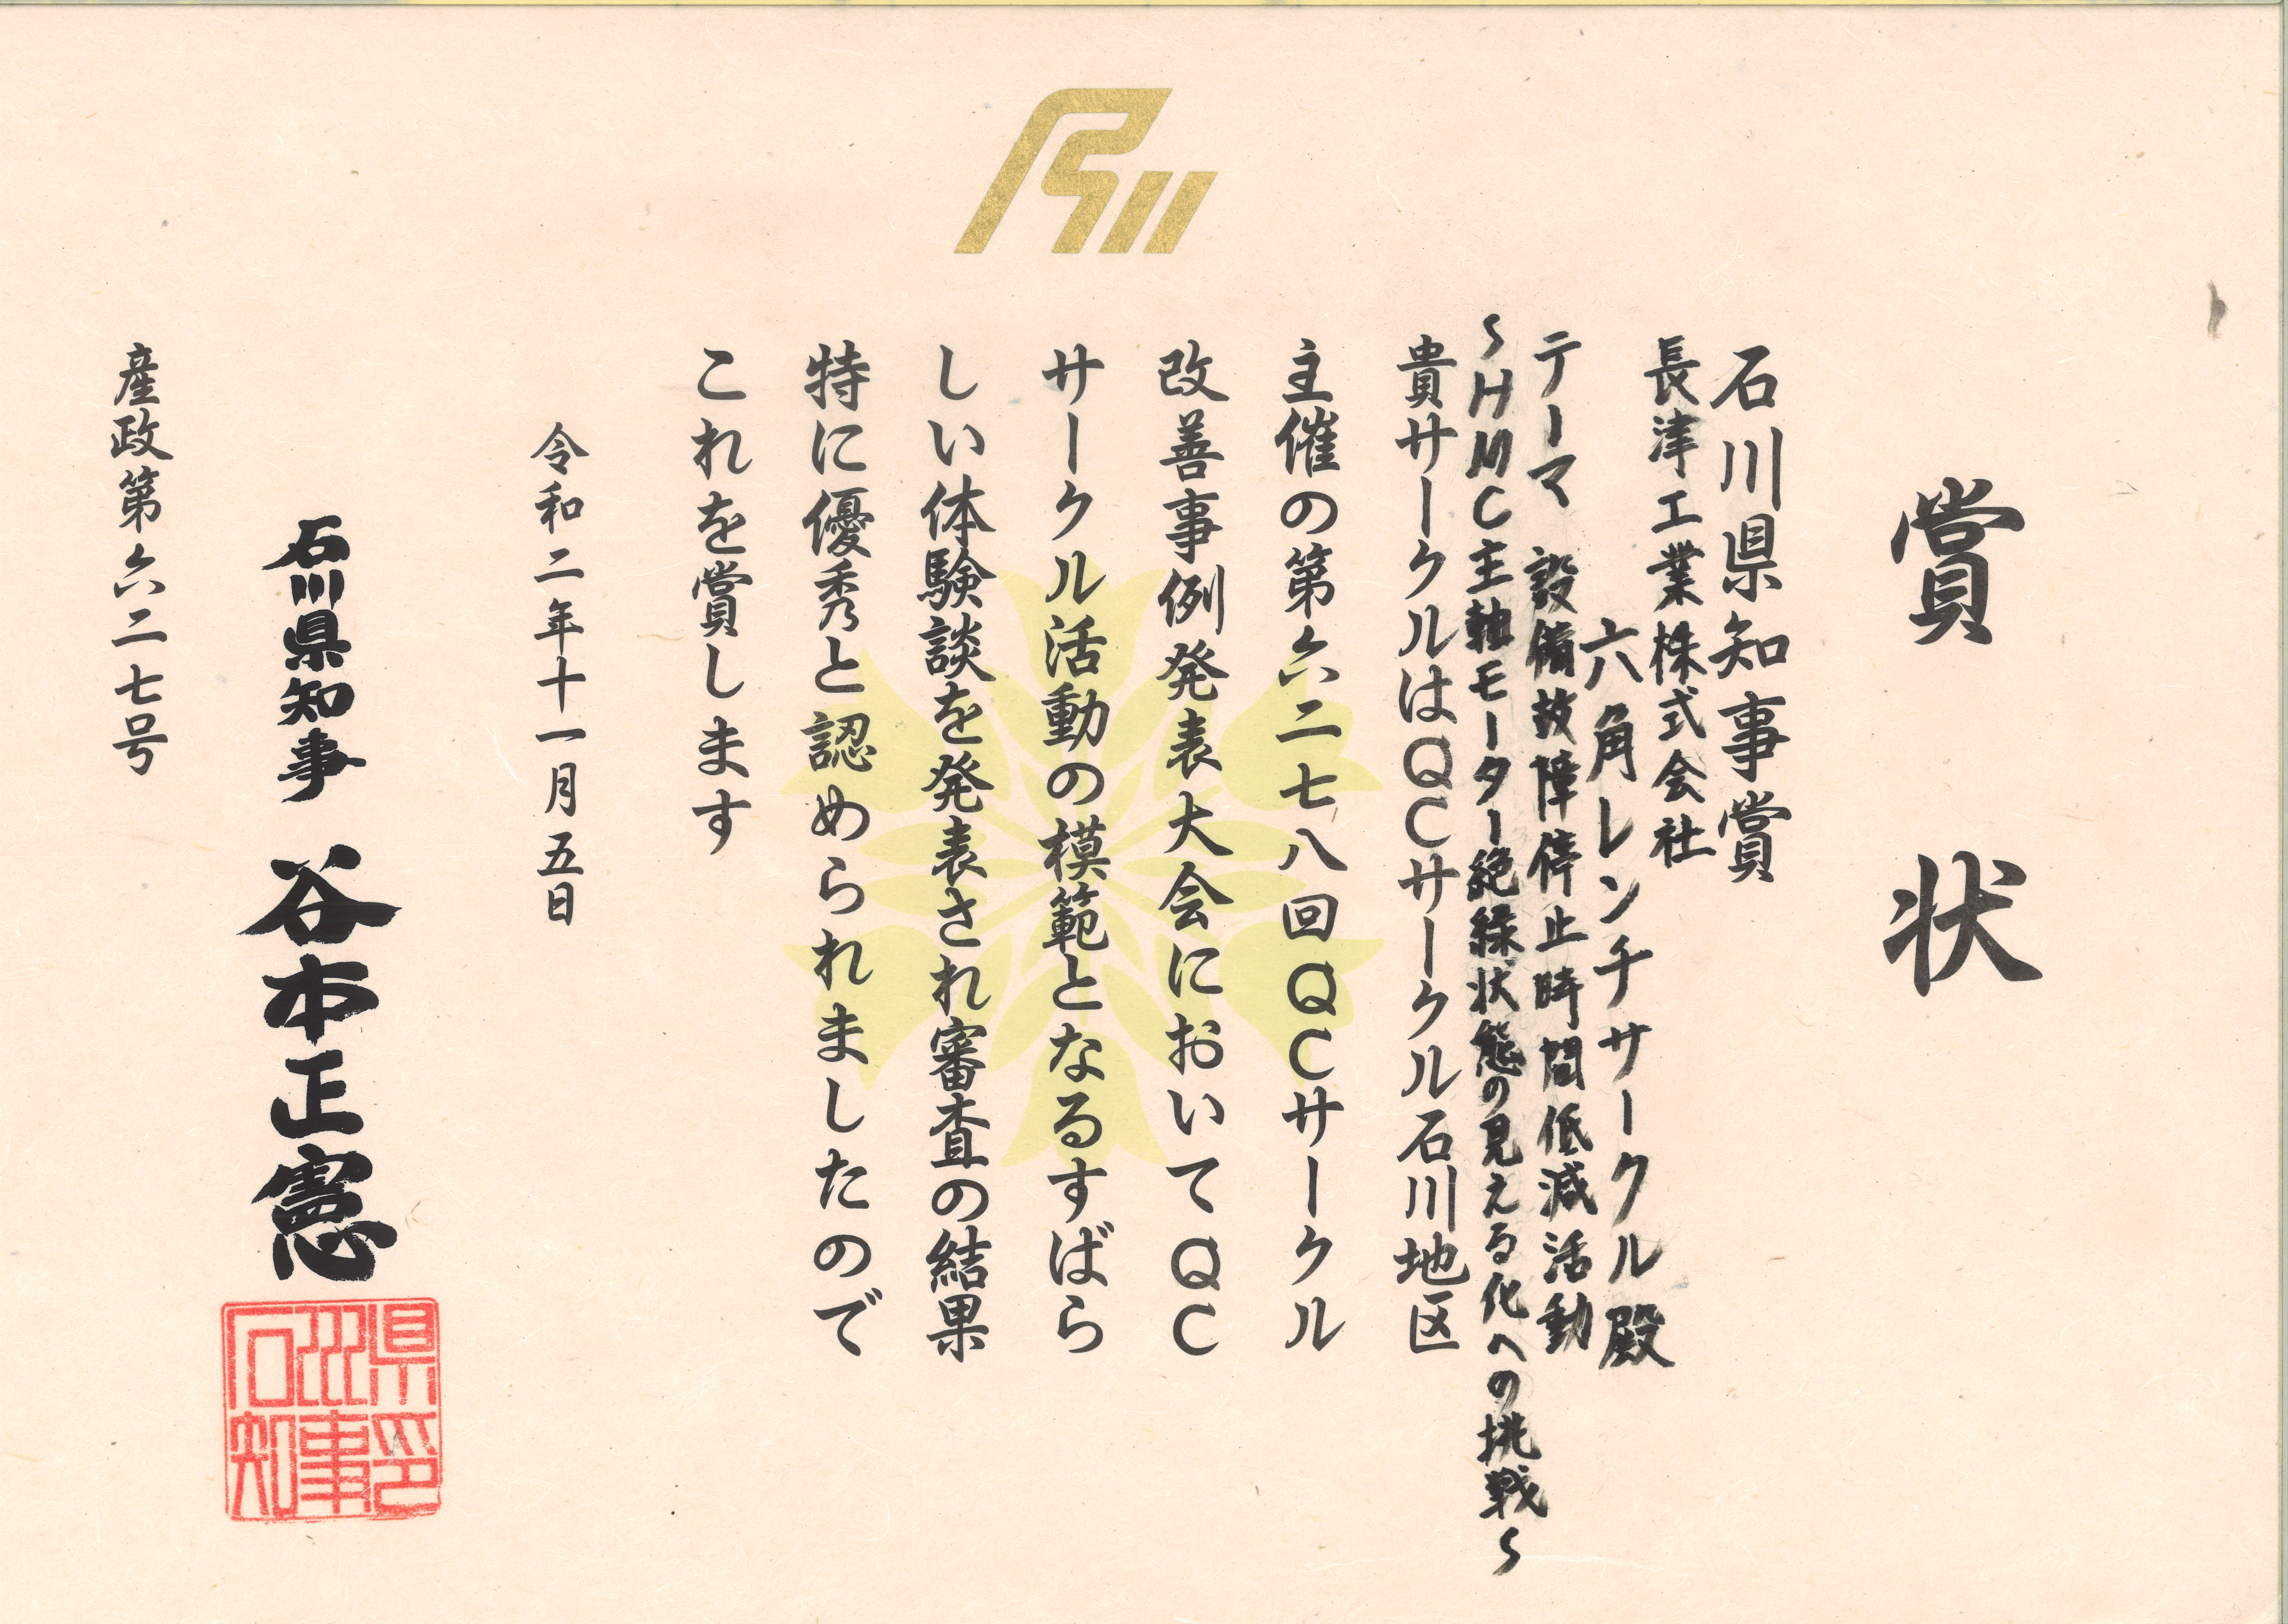 賞状
石川県知事賞
長津工業株式会社
六角レンチサークル殿
テーマ 設備故障停止時間低減活動
～HMC主軸モーター絶縁状態の見える化への挑戦～
貴サークルはQCサークル石川地区
主催の第六二七八回QCサークル
改善事例発表大会においてQC
サークル活動の模範となるすばら
しい体験談を発表され審査の結果
特に優秀と認められましたので
これを賞します
令和二年十一月五日
石川県知事 谷本正憲
県印
川事
石知
産政第六二七号